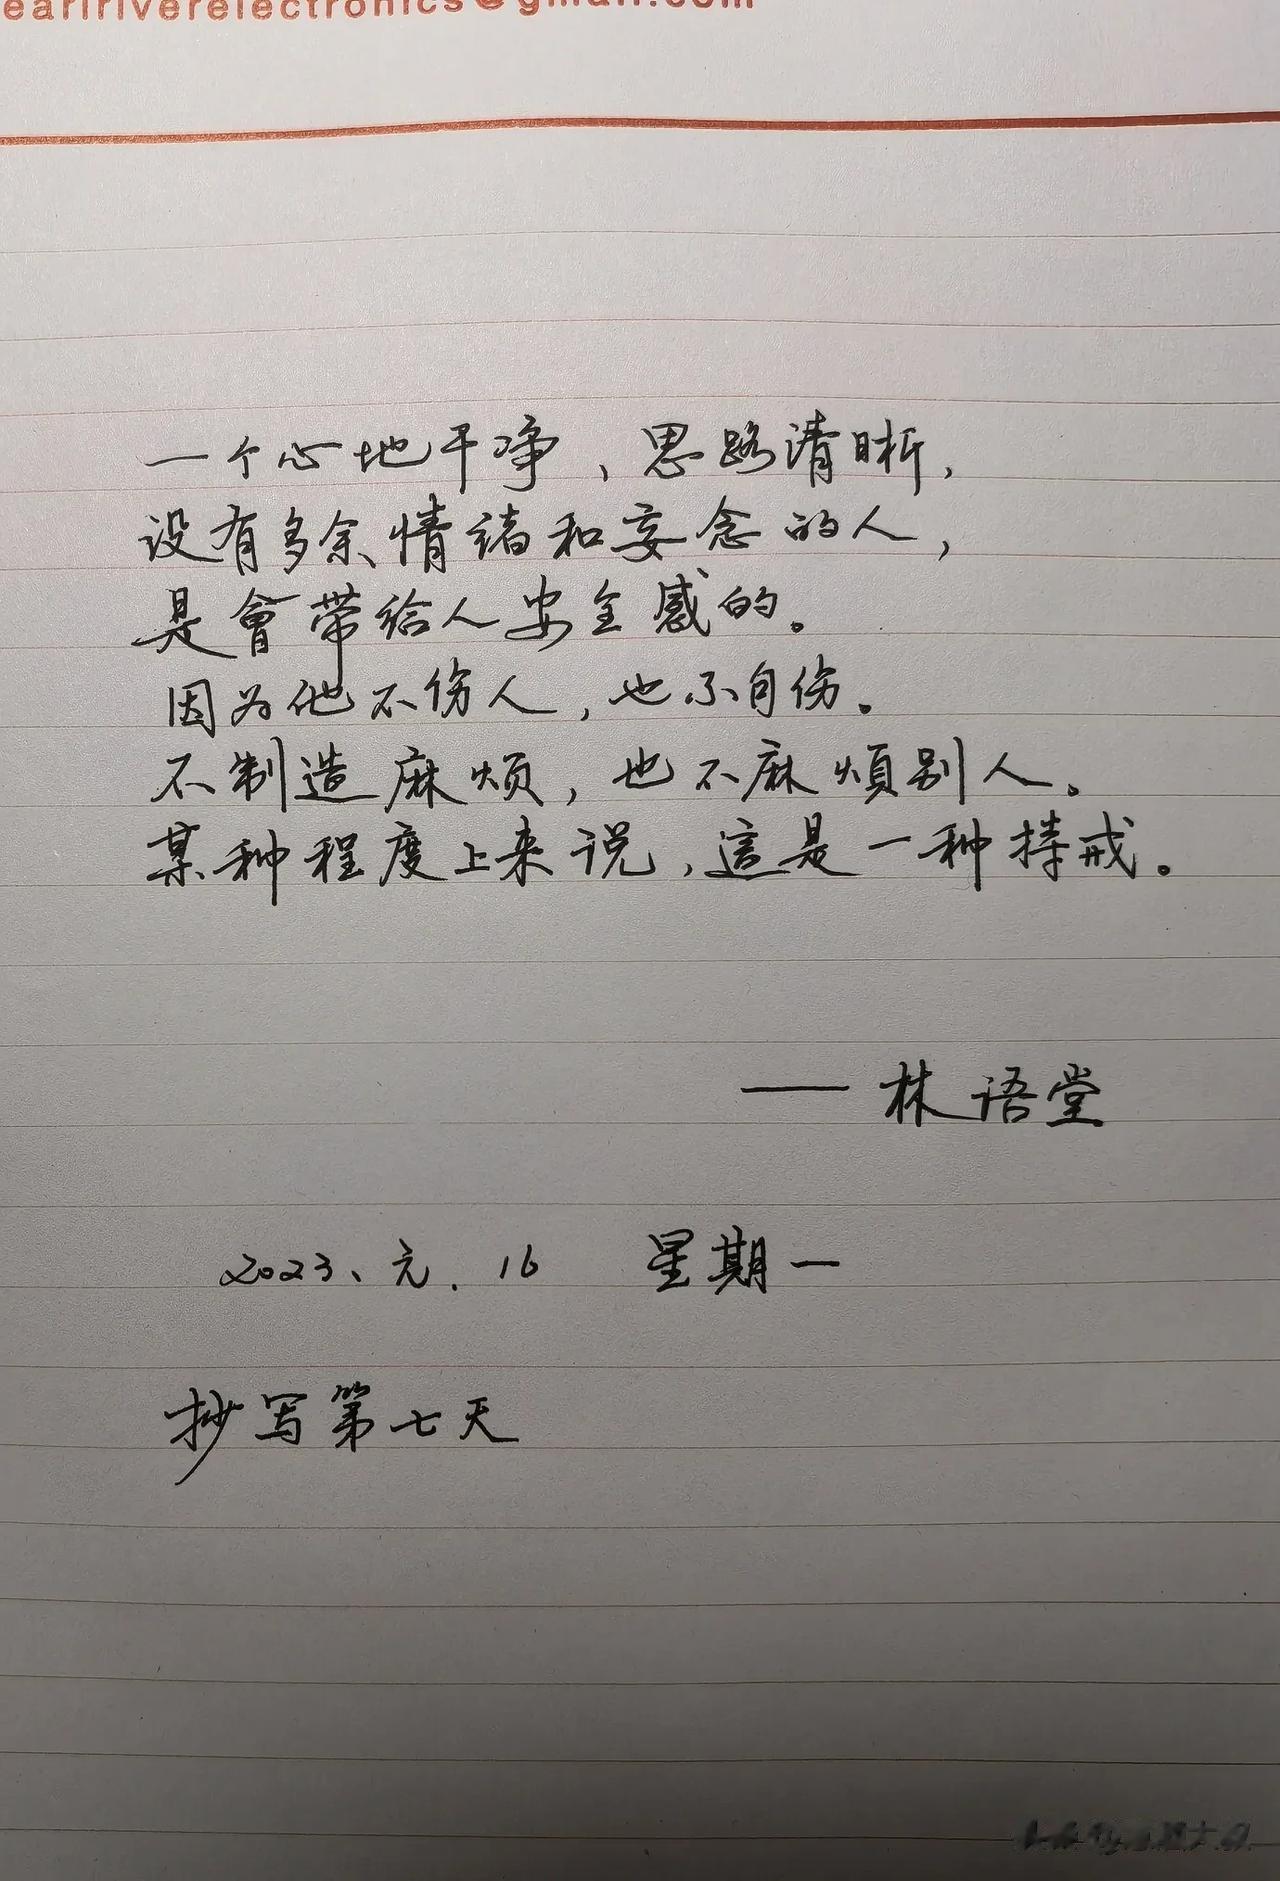 eaririverelectronics@gmail.com
一个心地干净、思路清晰,
没有多余情绪和妄念的人,
是會带给人安全感的。
因为他不伤人,也不自伤。
不制造麻烦,也不麻煩别人。
某种程度上来说,這是一种持戒。
——林语堂
2023、元.16 星期一
抄写第七天